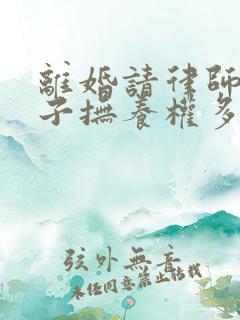 離婚請律師
子撫養權多
弦外無音
未經同意禁止轉載